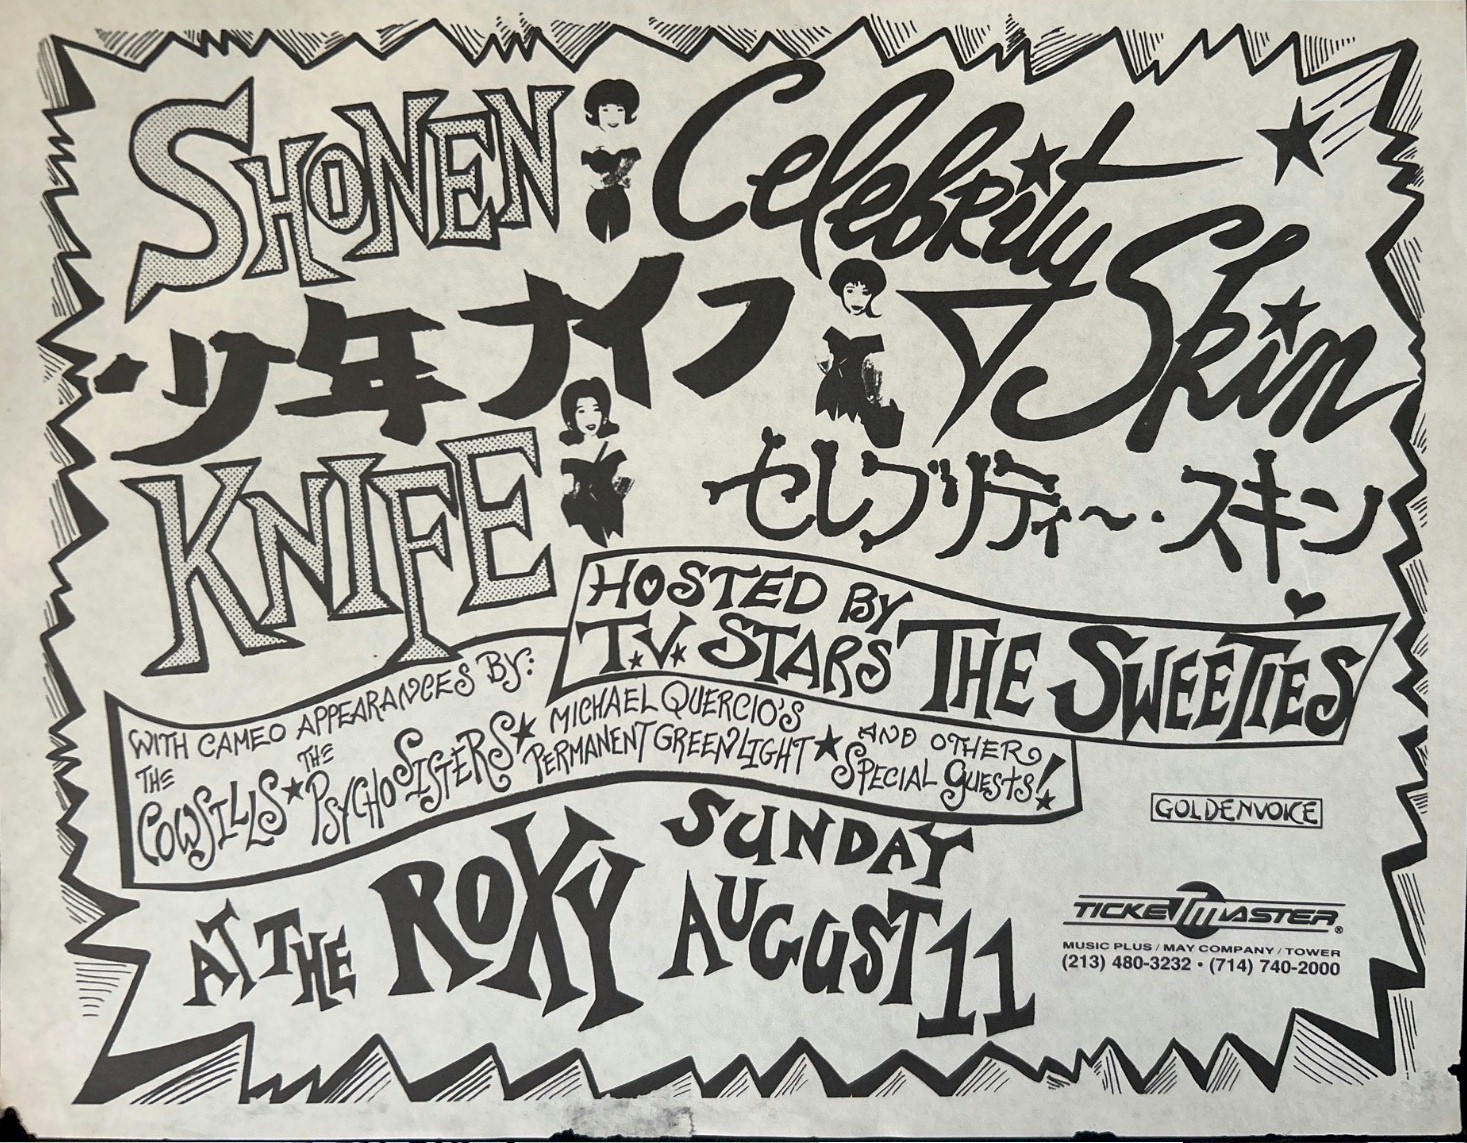 SHONEN
少年ナイフ
KNIFE
Celebrity
Skin
セレブリティ〜・スキン
HOSTED BY
T.V. STARS THE SWEETIES
WITH CAMEO APPEARANCES BY:
THE COWSILLS ★ THE PSYCHO SISTERS ★ MICHAEL QUERCIO'S PERMANENT GREEN LIGHT ★ AND OTHER SPECIAL GUESTS!
GOLDENVOICE
AT THE ROXY
SUNDAY
AUGUST 11
TICKETMASTER®
MUSIC PLUS / MAY COMPANY / TOWER
(213) 480-3232 • (714) 740-2000